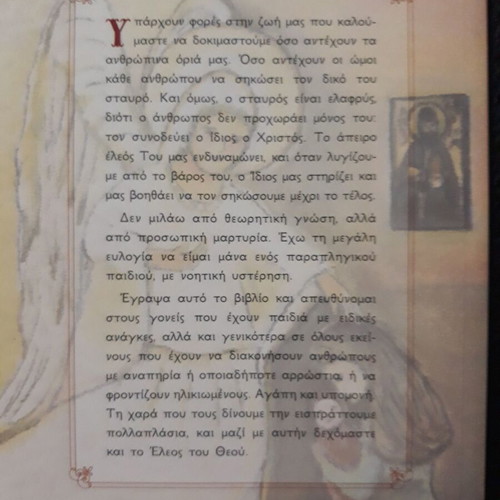 Υπάρχουν φορές στην ζωή μας που καλού-
μαστε να δοκιμαστούμε όσο αντέχουν τα
ανθρώπινα όριά μας. Όσο αντέχουν οι ώμοι
κάθε ανθρώπου να σηκώσει τον δικό του
σταυρό. Και όμως, ο σταυρός είναι ελαφρύς,
διότι ο άνθρωπος δεν προχωράει μόνος του:
τον συνοδεύει ο Ίδιος ο Χριστός. Το άπειρο
έλεός Του μας ενδυναμώνει, και όταν λυγίζου-
με από το βάρος του, ο Ίδιος μας στηρίζει και
μας βοηθάει να τον σηκώσουμε μέχρι το τέλος.
Δεν μιλάω από θεωρητική γνώση, αλλά
από προσωπική μαρτυρία. Έχω τη μεγάλη
ευλογία να είμαι μάνα ενός παραπληγικού
παιδιού, με νοητική υστέρηση.
Έγραψα αυτό το βιβλίο και απευθύνομαι
στους γονείς που έχουν παιδιά με ειδικές
ανάγκες, αλλά και γενικότερα σε όλους εκεί-
νους που έχουν να διακονήσουν ανθρώπους
με αναπηρία ή οποιαδήποτε αρρώστια, ή να
φροντίζουν ηλικιωμένους. Αγάπη και υπομονή.
Τη χαρά που τους δίνουμε την εισπράττουμε
πολλαπλάσια, και μαζί με αυτήν δεχόμαστε
και το Έλεος του Θεού.